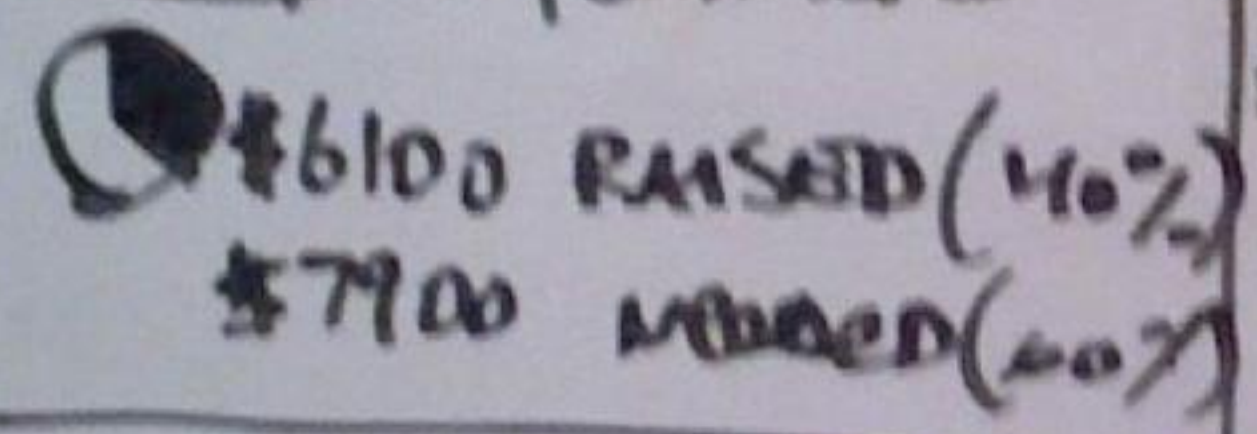 $6100 RAISED (40%)
$7900 NEEDED (60%)